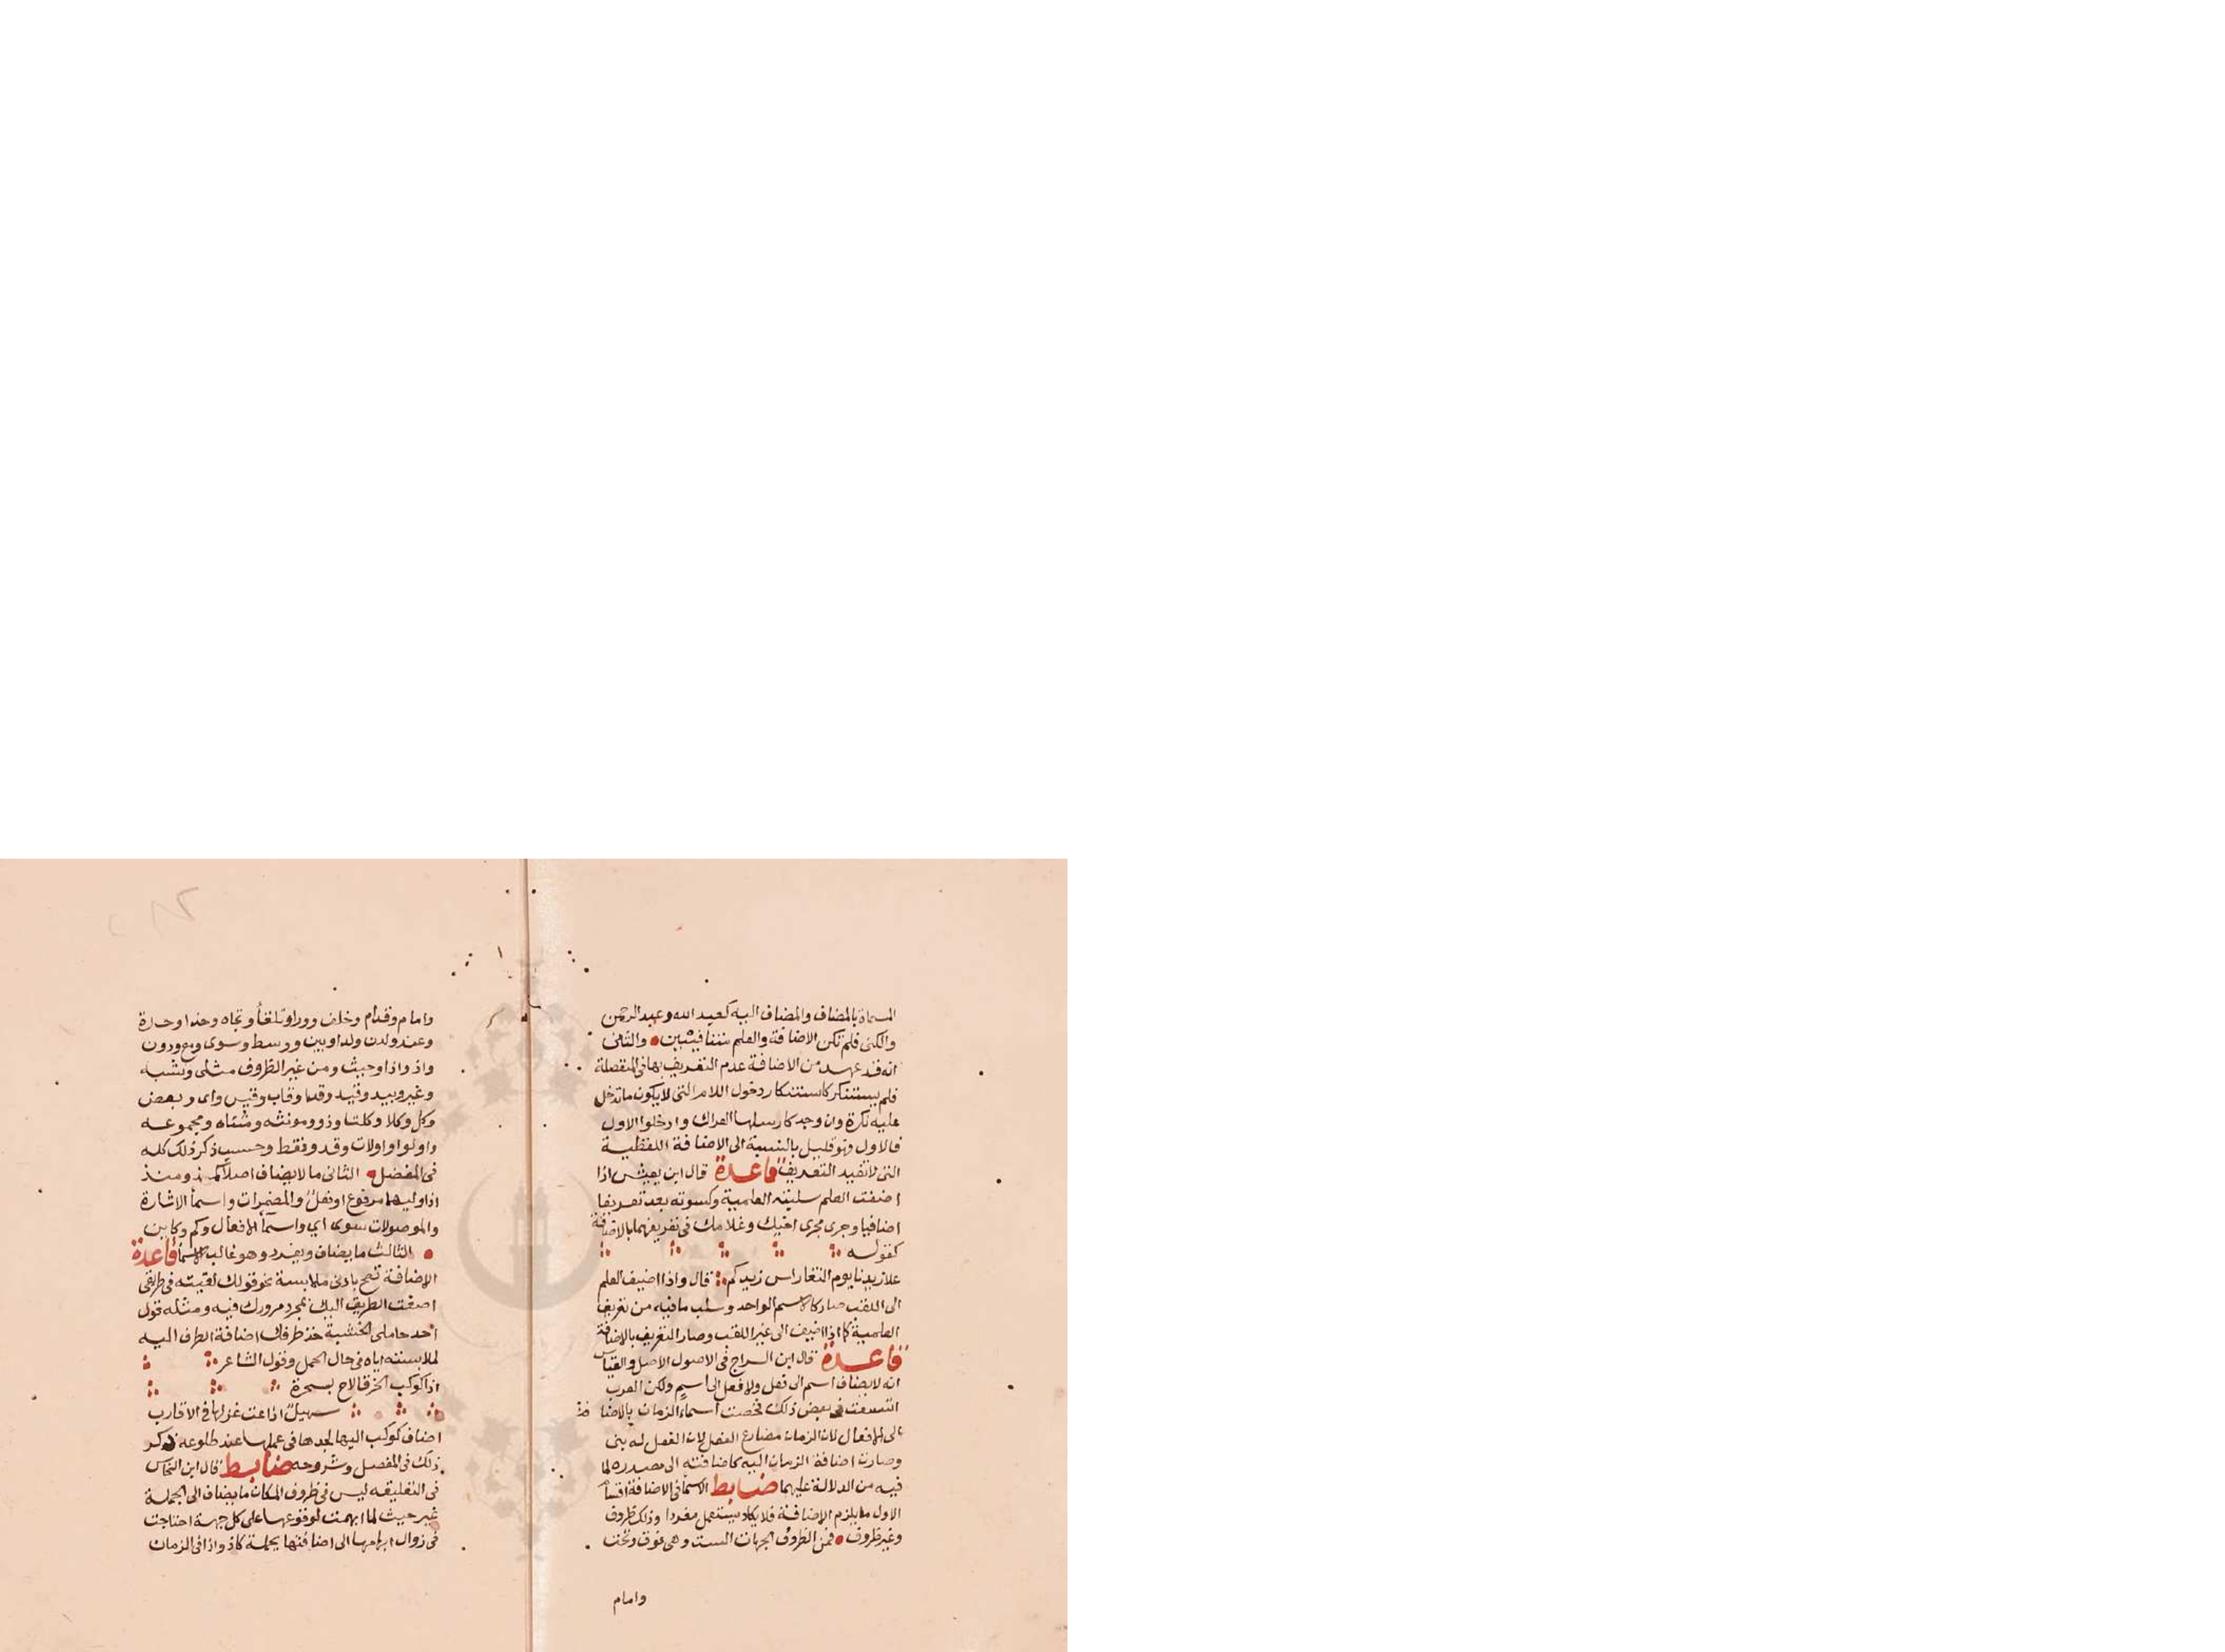 المسماة بالمضاف والمضاف اليه كعبد الله وعبد الرحمن
والكنى فلم تكن الاضافة والعلم متنافيين والثانى
انه قد عهد من الاضافة عدم التعريف بها فى المنفصلة
فلم يستنكر كاستنكار دخول اللام التى لا يكون ما تدخل
عليه نكرة وان وجد كارسلها العراك وادخلوا الاول
فالاول وهو قليل بالنسبة الى الاضافة اللفظية
التى لا تفيد التعريف قاعدة قال ابن يعيش اذا
اضفت العلم سلبته العلمية وكسوته بعد تعريفا
اضافيا وجرى مجرى اخيك وغلامك فى تعريفهما بالاضافة
كقوله
علا زيدنا يوم النقا راس زيدكم قال واذا اضيف العلم
الى اللقب صار كالاسم الواحد وسلب ما فيه من تعريف
العلمية كما اذا اضيف الى غير اللقب وصار التعريف بالاضافة
قاعدة قال ابن السراج فى الاصول الاصل والقياس
انه لا يضاف اسم الى فعل ولا فعل الى اسم ولكن العرب
اتسعت فى بعض ذلك فخصت اسماء الزمان بالاضافة
الى الافعال لان الزمان مضارع الفعل لان الفعل له بنى
وصارت اضافة الزمان اليه كاضافته الى مصدره لما
فيه من الدلالة عليهما ضابط الاسما فى الاضافة اقسام
الاول ما يلزم الاضافة فلا يكاد يستعمل مفردا وذلك ظروف
وغير ظروف فمن الظروف الجهات الست وهى فوق وتحت
وامام
وامام وقدام وخلف وورا وتلقأ وتجاه وحذا وحذة
وعند ولدن ولدا وبين ووسط وسوى ومع ودون
واذ واذا وحيث ومن غير الظروف مثل وشبه
وغير وبيد وقيد وقدا وقاب وقيس واى وبعض
وكل وكلا وكلتا وذو ومونثه ومثناه ومجموعه
واولوا واولات وقد وقط وحسب ذكر ذلك كله
فى المفصل الثانى ما لا يضاف اصلا كمذ ومنذ
اذا وليهما مرفوع او فعل والمضمرات واسمأ الاشارة
والموصولات سوى اي واسمأ الافعال وكم وكاين
الثالث ما يضاف ويفرد وهو غالب الاسما قاعدة
الاضافة تصح بادنى ملابسة نحو قولك لقيته فى طريقى
اضفت الطريق اليك بمجرد مرورك فيه ومثله قول
احد حاملى الخشبة خذ طرفك اضافة الطرف اليه
لملابسته اياه فى حال الحمل وقول الشاعر
اذا كوكب الخرقا لاح بسحرة
سهيل اذاعت غزلها فى الاقارب
اضاف كوكب اليها لجدها فى عملها عند طلوعه ذكر
ذلك فى المفصل وشروحه ضابط قال ابن النحاس
فى التعليقه ليس فى ظروف المكان ما يضاف الى الجملة
غير حيث لما ابهمت لوقوعها على كل جهة احتاجت
فى زوال ابهامها الى اضافتها بجملة كاذ واذا فى الزمان